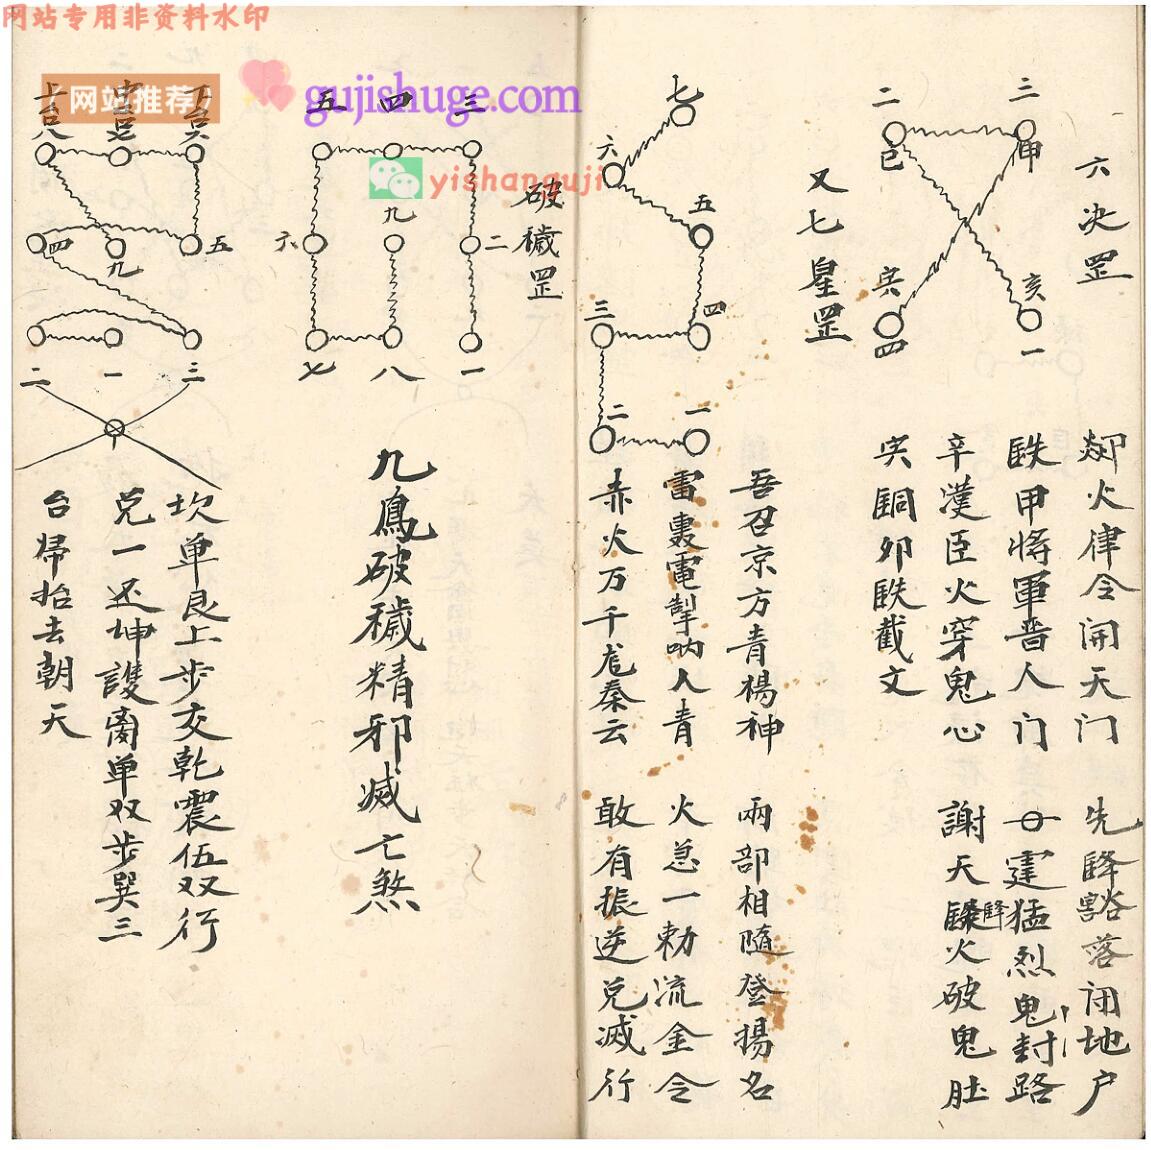 网站专用非资料水印
网站推荐
gujishuge.com
yishanguji
六决罡
三
甲
二
巳
亥
一
四
火律令開天门 先
豁落闭地户
甲将軍普人门
霆猛烈鬼封路
辛漢臣火穿鬼心
謝天
火破鬼肚
卯
截文
又七星罡
七
六
五
四
三
二
一
吾召京方青楊神 兩部相隨登揚名
雷轟電掣吶人青 火急一勅流金令
赤火万千 秦云 敢有振逆兑滅行
破穢罡
三
四
五
二
九
六
一
八
七
九鳳破穢精邪滅亡煞
五
九
四
三
一
二
坎单艮上步交乾震伍双行
兑一还坤護离单双步巽三
台歸抬去朝天